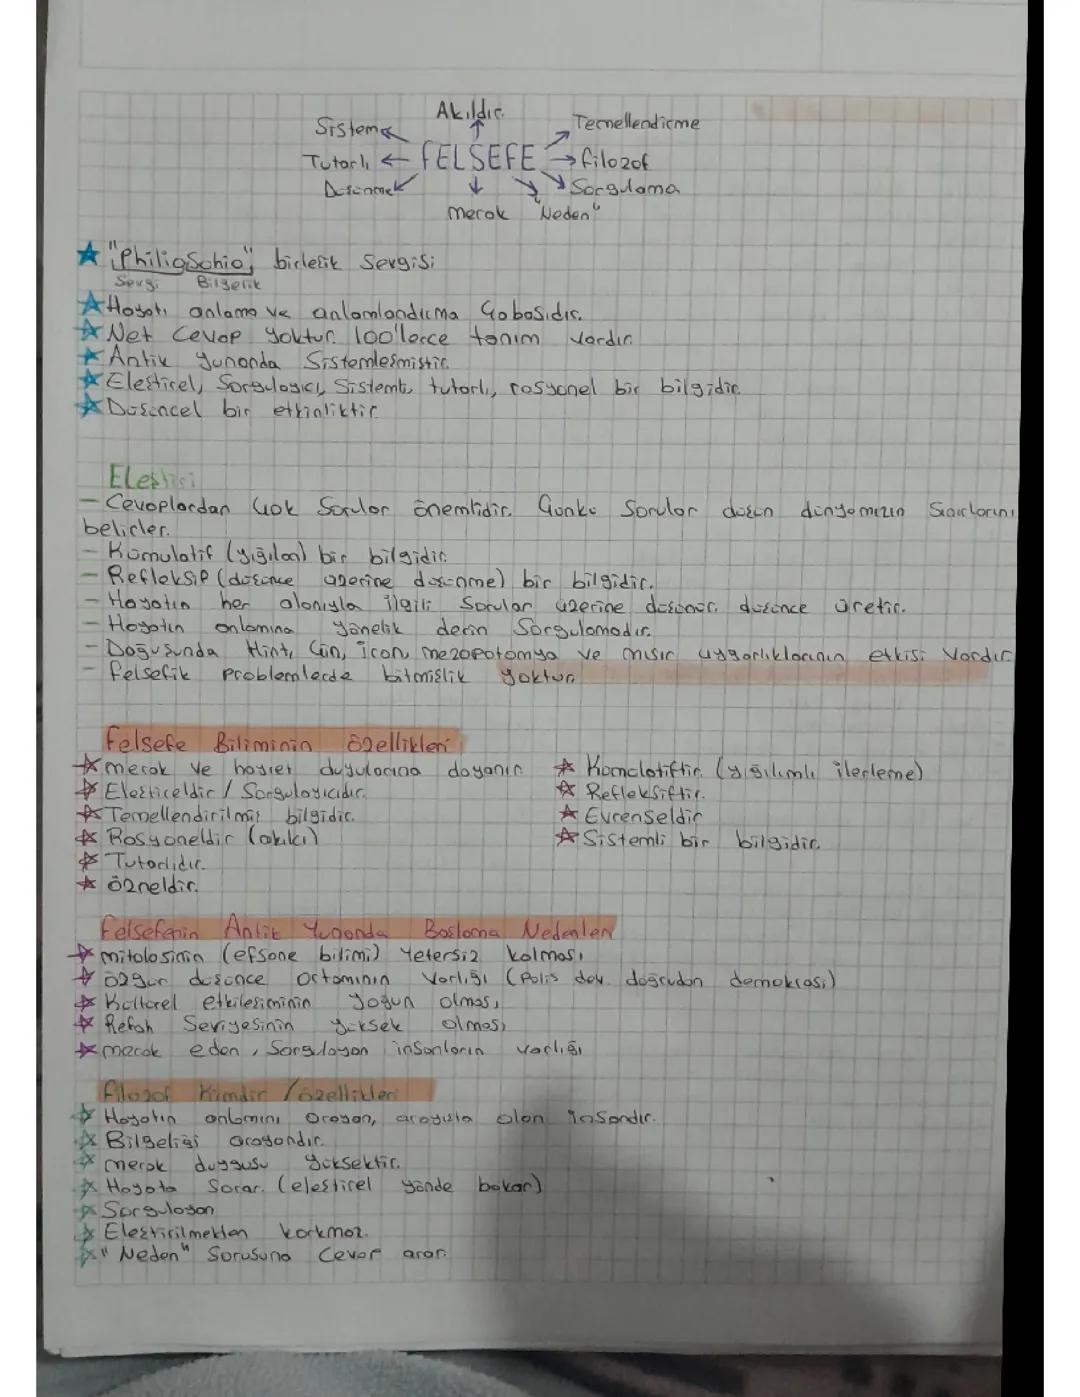 Akıldır.
Sistem
Temellendirme
Tutarlı FELSEFE filozof
Düşünmek
Sorgulama
merak "Neden"
"PhiliaSohia", birlesik Sevgisi
Sevgi Bilgelik
Hayatı anlama ve anlamlandırma Çabasıdır.
Net Cevap yoktur. 100'lerce tanım vardır.
Antik yunanda Sistemleşmiştir.
Eleştirel, Sorgulayıcı, Sistemli, tutarlı, rasyonel bir bilgidir.
Düşüncel bir etkinliktir
Eleştiri
- Cevaplardan Çok Sorular önemlidir. Çünkü Sorular düşün dünyamızın Sınırlarını
belirler.
- Kümülatif (yığılan) bir bilgidir.
- Refleksif (düşünce üzerine düşünme) bir bilgidir.
- Hayatın her alanıyla ilgili Sorular üzerine düşünür. düşünce üretir.
- Hayatın anlamına yönelik derin Sorgulamadır.
- Doğuşunda Hint, Çin, İran, mezopotamya ve mısır uygarlıklarının etkisi Vardır
- Felsefik problemlerde bitmişlik yoktur.
Felsefe Biliminin özellikleri
merak ve hayret duygularına dayanır.
Eleştireldir / Sorgulayıcıdır.
Temellendirilmiş bilgidir.
Rasyoneldir (akılcı)
Tutarlıdır.
özneldir.
Kümülatiftir. (yığılımlı ilerleme)
Refleksiftir.
Evrenseldir
Sistemli bir bilgidir.
Felsefenin Antik Yunanda Başlama Nedenleri
mitolojinin (efsane bilimi) Yetersiz kalması
özgür düşünce Ortamının Varlığı (Polis dev. doğrudan demokrasi)
Kültürel etkileşiminin yoğun olması
Refah Seviyesinin yüksek olması
merak eden, Sorgulayan insanların varlığı
filozof Kimdir / özellikleri
Hayatın anlamını arayan, arayışta olan insandır.
Bilgeliği arayandır.
merak duygusu yüksektir.
Hayata Sorar. (eleştirel yönde bakar)
Sorgulayan
Eleştirilmekten korkmaz.
"Neden" Sorusuna Cevap arar.